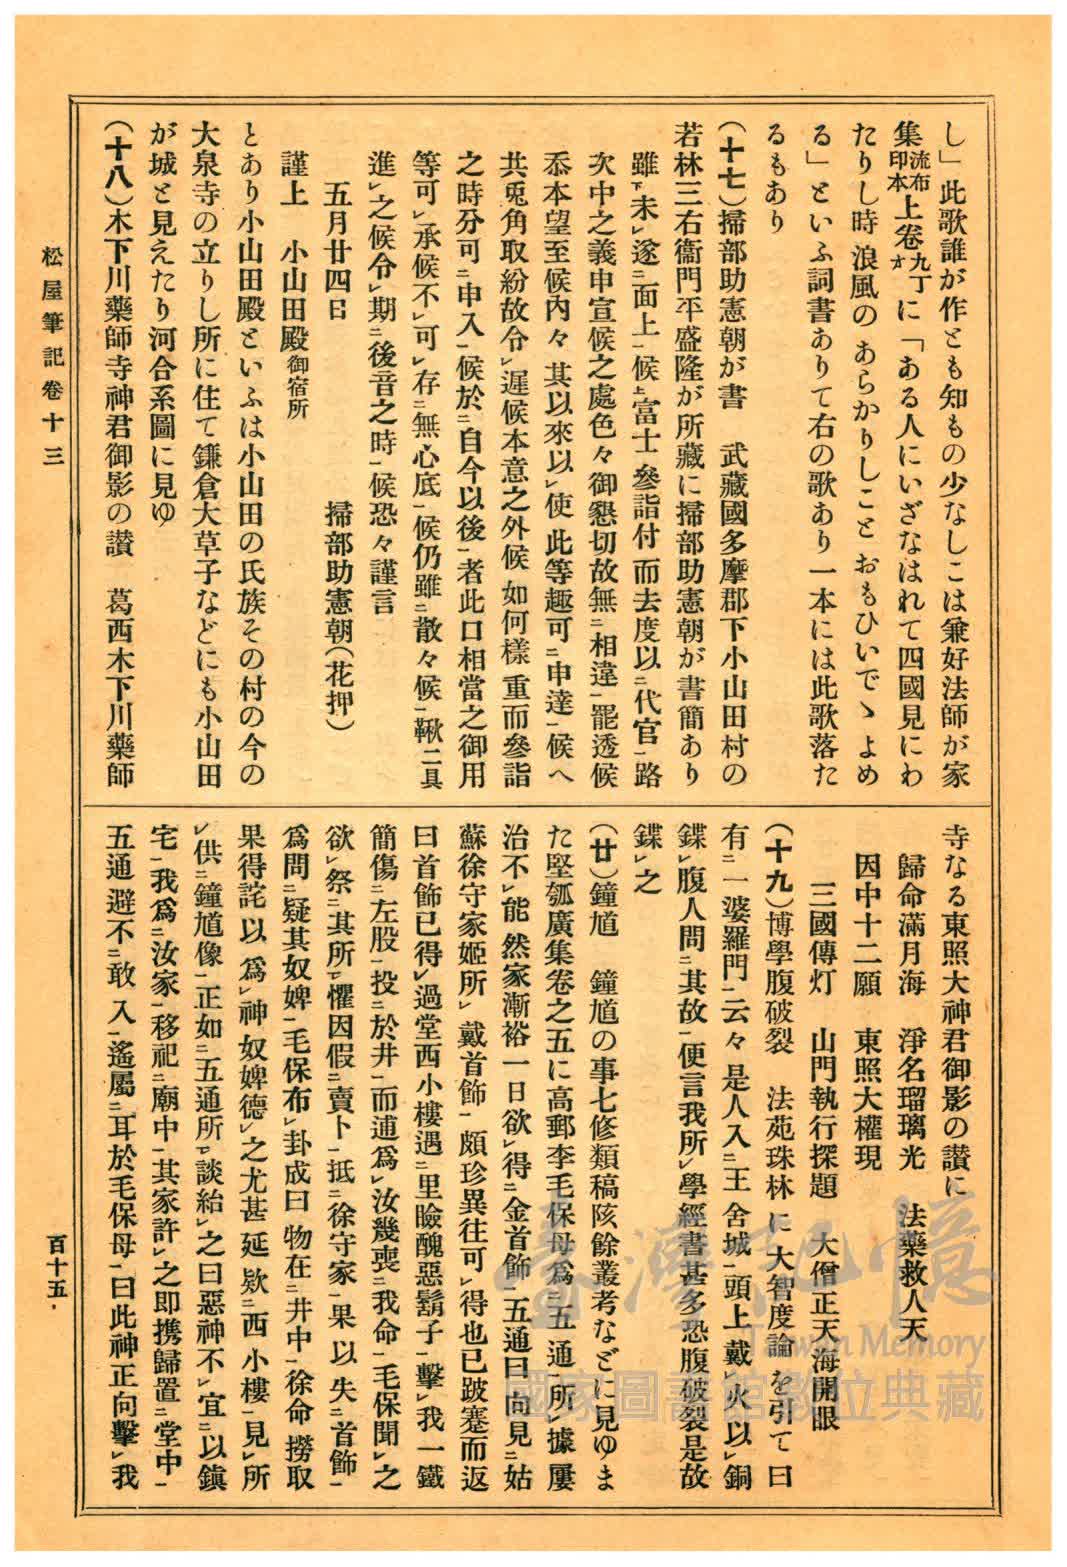 し」此歌誰が作とも知もの少なしこは兼好法師が家
集流布印本上卷九丁ォに「ある人にいざなはれて四國見にわ
たりし時浪風のあらかりしことおもひいでゝよめ
る」といふ詞書ありて右の歌あり一本には此歌落た
るもあり
(十七)掃部助憲朝が書　武藏國多摩郡下小山田村の
若林三右衞門平盛隆が所藏に掃部助憲朝が書簡あり
雖下未レ遂二面上一候上富士參詣付而去度以二代官一路
次中之義申宣候之處色々御懇切故無二相違一罷透候
忝本望至候內々其以來以レ使此等趣可二申達一候へ
共兎角取紛故令レ遲候本意之外候如何樣重而參詣
之時分可二申入一候於二自今以後一者此口相當之御用
等可レ承候不レ可レ存二無心底一候仍雖二散々候一鞦二具
進レ之候令レ期二後音之時一候恐々謹言
五月廿四日　掃部助憲朝(花押)
謹上　小山田殿御宿所
とあり小山田殿といふは小山田の氏族その村の今の
大泉寺の立りし所に住て鎌倉大草子などにも小山田
が城と見えたり河合系圖に見ゆ
(十八)木下川藥師寺神君御影の讃　葛西木下川藥師
寺なる東照大神君御影の讃に
歸命滿月海　淨名瑠璃光　法藥救人天
因中十二願　東照大權現
三國傳灯　山門執行探題　大僧正天海開眼
(十九)博學腹破裂　法苑珠林に大智度論を引て曰
有二一婆羅門一云々是人入二王舍城一頭上戴レ火以レ銅
鍱レ腹人問二其故一便言我所レ學經書甚多恐腹破裂是故
鍱レ之
(廿)鐘馗　鐘馗の事七修類稿陔餘叢考などに見ゆま
た堅瓠廣集卷之五に高郵李毛保母爲二五通一所レ據屢
治不レ能然家漸裕一日欲レ得二金首飾一五通曰向見二姑
蘇徐守家姬所レ戴首飾一頗珍異往可レ得也已跛蹇而返
曰首飾已得レ過堂西小樓遇二里瞼醜惡鬍子一擊レ我一鐵
簡傷二左股一投二於井一而逋爲レ汝幾喪二我命一毛保聞レ之
欲レ祭二其所一レ懼因假二賣卜一抵二徐守家一果以失二首飾一
爲問二疑其奴婢一毛保布レ卦成曰物在二井中一徐命撈取
果得詫以爲レ神奴婢德レ之尤甚延欵二西小樓一見レ所
レ供二鐘馗像一正如二五通所一レ談紿レ之曰惡神不レ宜二以鎭
宅一我爲二汝家一移祀二廟中一其家許レ之卽携歸置二堂中一
五通避不二敢入一遙屬二耳於毛保母一曰此神正向擊レ我
松屋筆記卷十三
百十五
臺灣記憶
Taiwan Memory
國家圖書館數位典藏